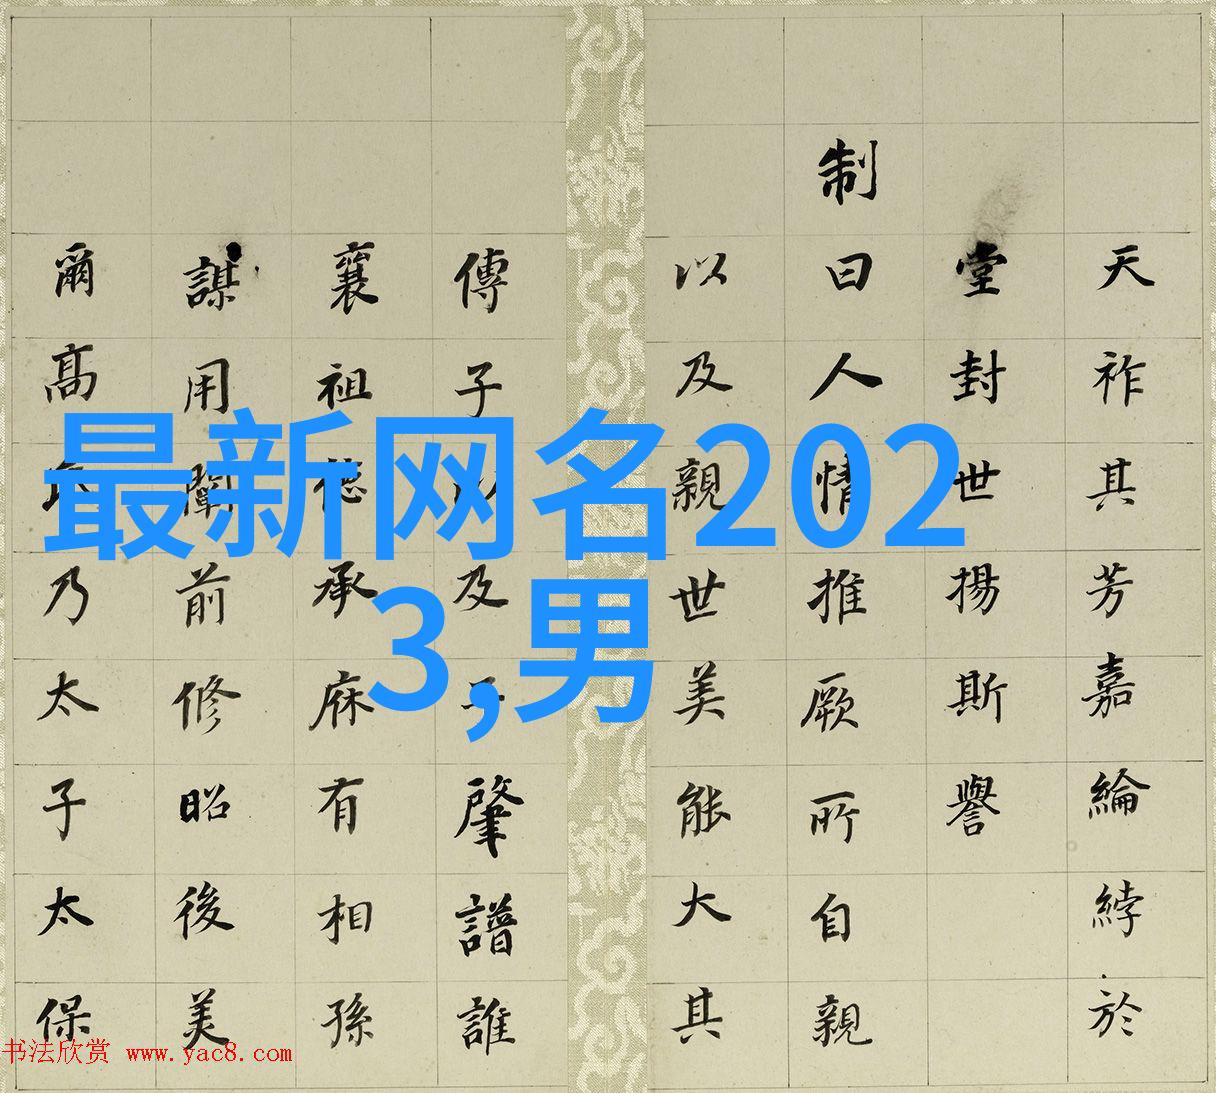 最新网名202
3,男
天祚其芳嘉綸綍於
堂封世揚斯譽
制曰人情推厥所自親
以及親世美能大其
傳子及肇譜誰
襄祖德承庥有相孫
謀用闡前修昭後美
爾高乃太子太保
书法欣赏 www.yac8.com